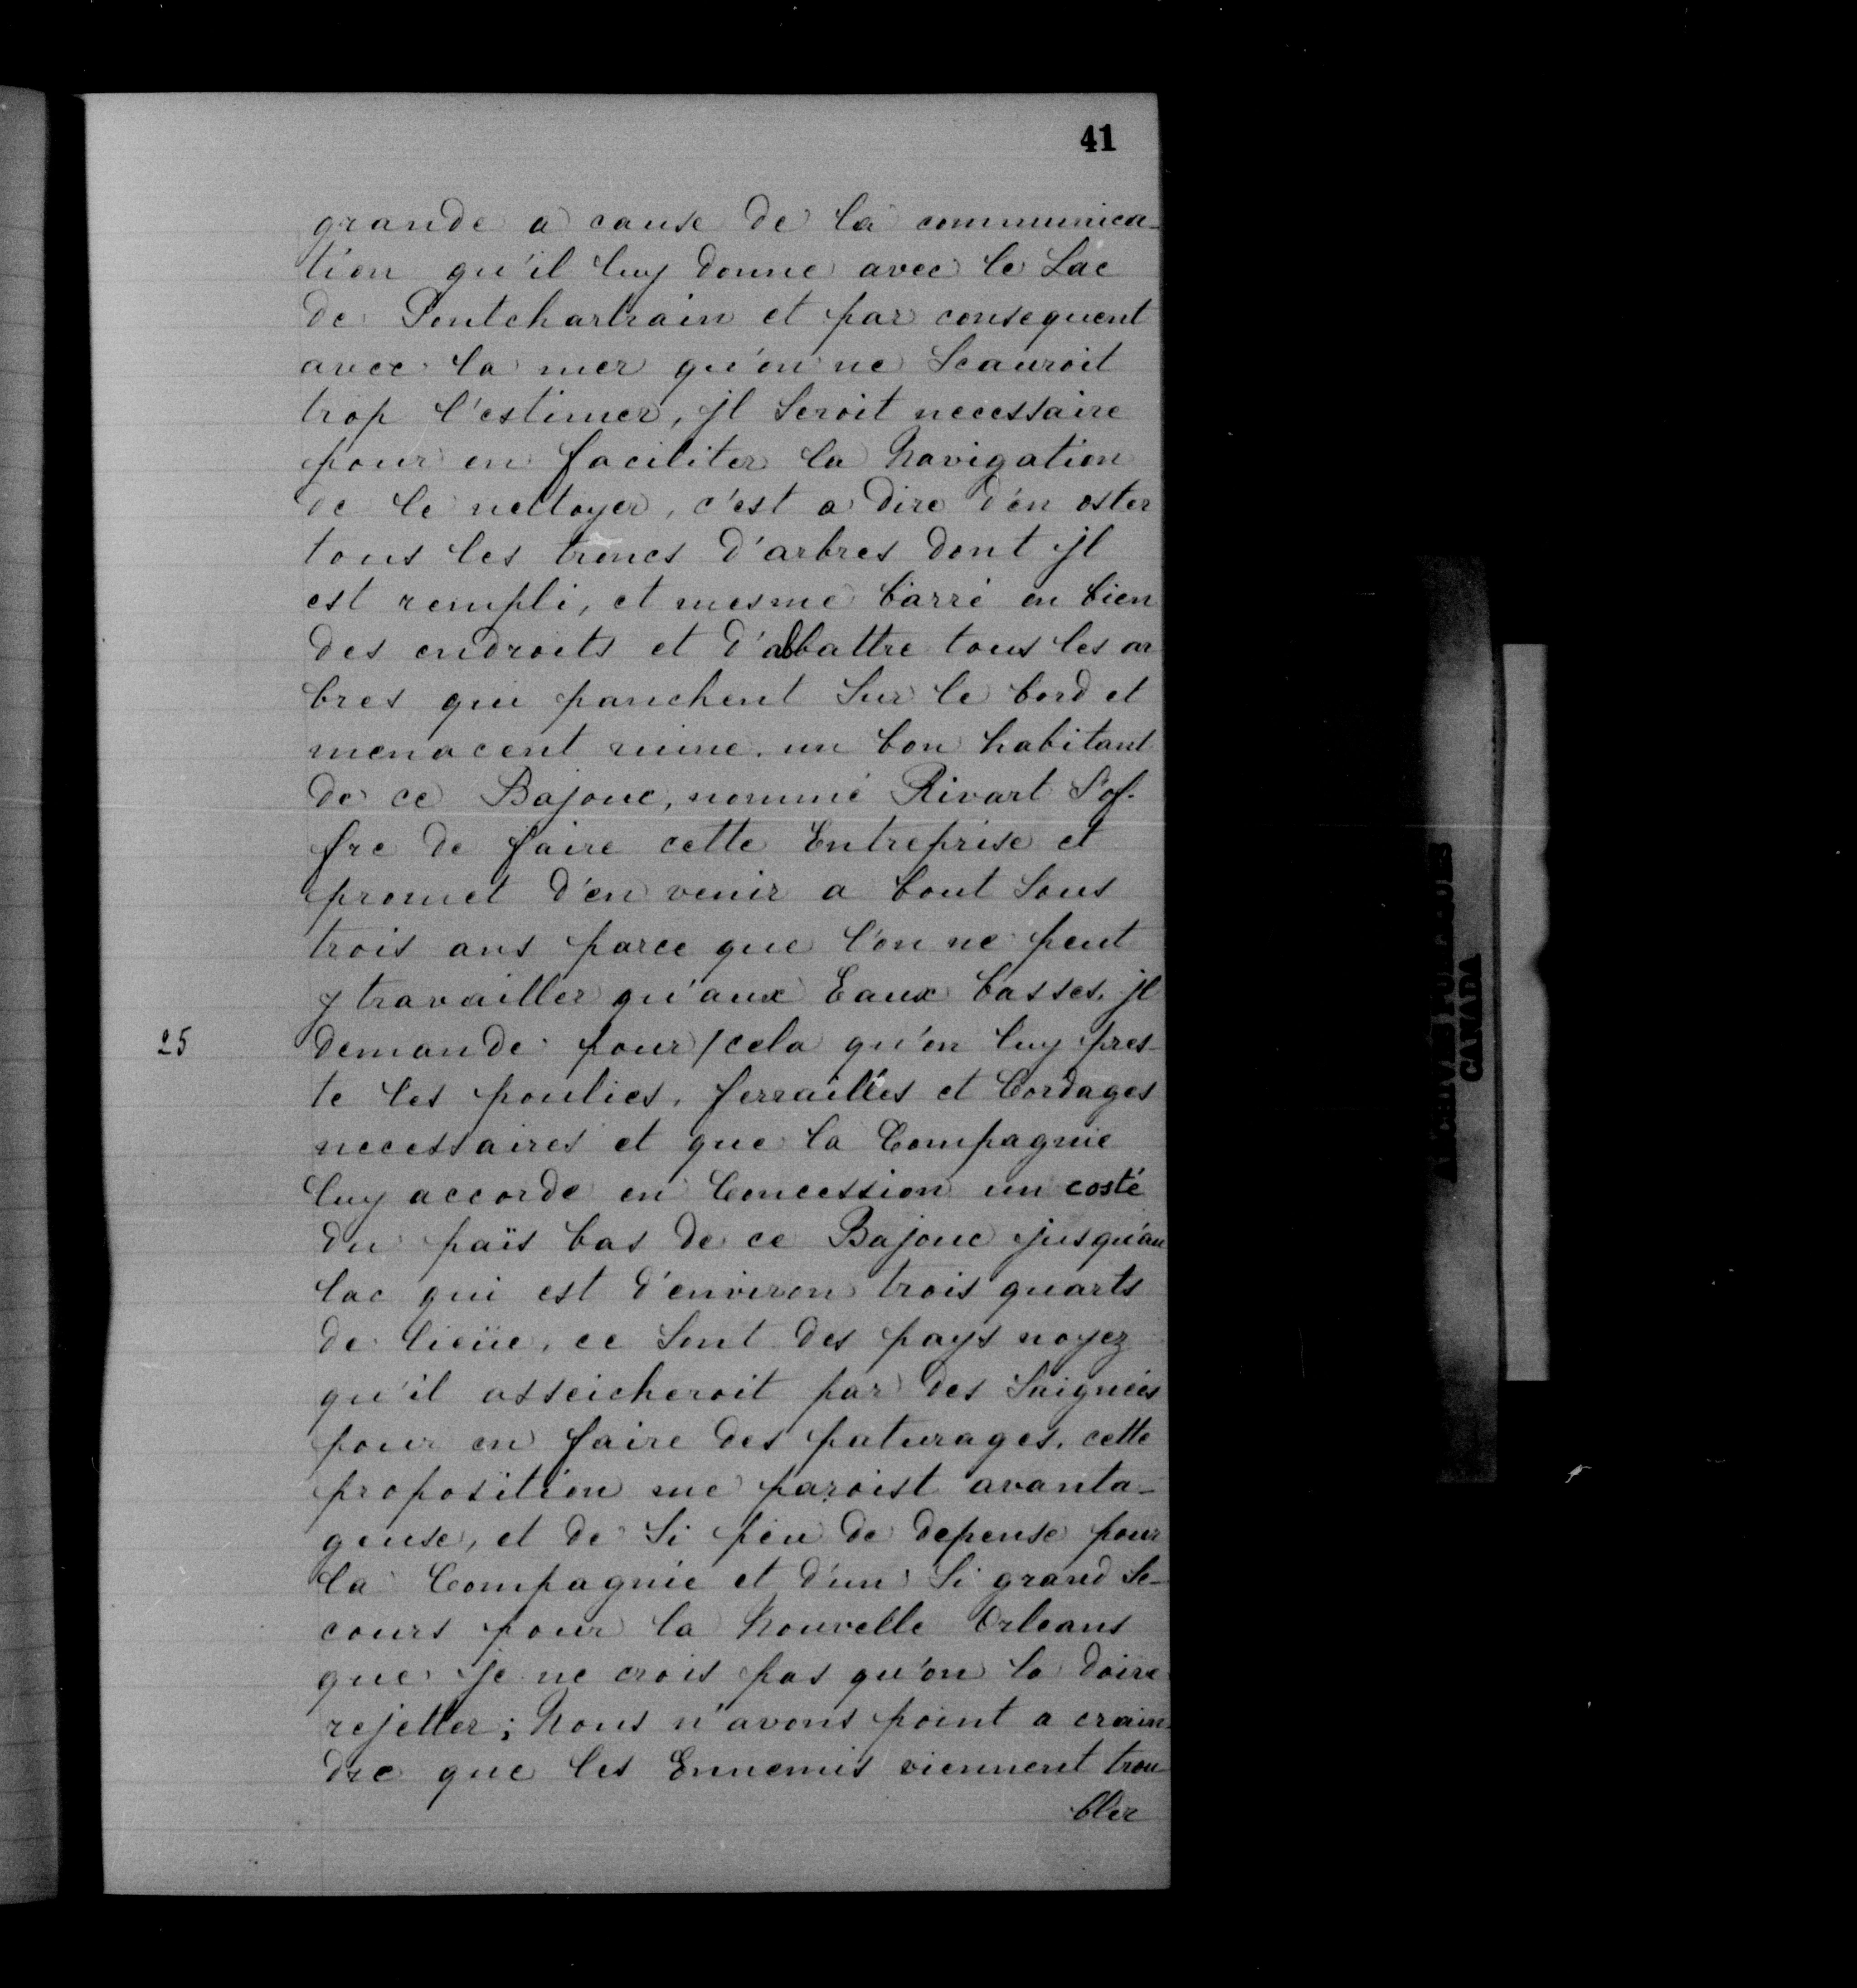 41
grande a cause de la communica-
tion qu'il luy donne avec le Lac
de Pontchartrain et par consequent
avec la mer qu'on ne Scauroit
trop l'estimer, jl Seroit necessaire
pour en faciliter la Navigation
de le nettoyer, c'est a dire d'en oster
tous les troncs d'arbres dont jl
est rempli, et mesme barré en bien
des endroits et d'abbattre tous les ar
bres qui panchent Sur le bord et
menacent ruine. un bon habitant
de ce Bajouc, nommé Rivart S'of-
fre de faire cette Entreprise et
promet d'en venir a bout Sous
trois ans parce que l'on ne peut
y travailler qu'aux Eaux basses. jl
25 demande pour/cela qu'on luy pres-
te les poulies, ferrailles et Cordages
necessaires et que la Compagnie
luy accorde en Concession un costé
du païs bas de ce Bajouc jusqu'au
lac qui est d'environ trois quarts
de lieüe, ce Sont des pays noyez
qu'il asseicheroit par des Saignées
pour en faire des paturages. cette
proposition me paroist avanta-
geuse, et de Si peu de depense pour
la Compagnie et d'un Si grand Se-
cours pour la Nouvelle Orleans
que je ne crois pas qu'on la doive
rejetter; Nous n'avons point a crain-
dre que les Ennemis viennent trou-
bler
CANADA